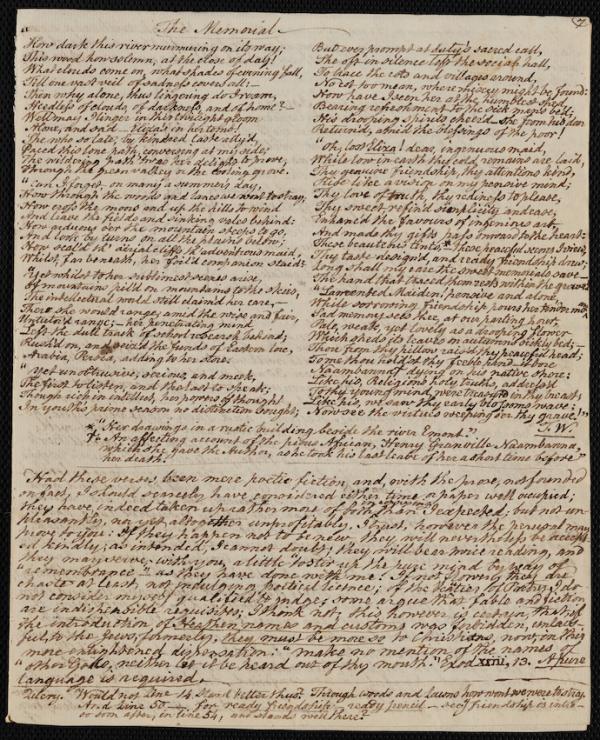 The Memorial
7
"How dark this river murmuring on its way;
This wood how solemn, at the close of day!
What clouds come on, what shades of evening fall,
Till one vast veil of sadness covers all:—
Then why alone, thus lingering do I roam,
Heedless of clouds, of darkness, and of home?—
Well may I linger in this twilight gloom
Alone, and sad — Eliza's in her tomb!
She who so late, by kindred taste ally'd,
Paced this lone path, conversing at my side;
The wildering path 'twas her delight to prove,
Through the green valley or the cooling grove.
"Can I forget, on many a summer's day,
How through the woods and lanes we wont to stray;
How cross the moors and up the hills to wind
And leave the fields and sinking vales behind:
How arduous o'er the mountain steeps to go,
And look by turns on all the plains below;
How scal'd th' aërial cliffs th' advent'rous maid,
Whilst, far beneath, her foil'd companion staid:
"Yet whilst to her sublimest scenes arise,
Of mountains pil'd on mountains to the skies,
The intellectual world still claim'd her care,—
There she would range, amid the wise and fair,
Untutor'd range; — her penetrating mind
Left the dull track of school research behind;
Rush'd on, and seiz'd the funds of Eastern lore,
Arabia, Persia, adding to her store.
"Yet unobtrusive, serious, and meek,
The first to listen, and the last to speak;
Though rich in intellect, her powers of thought
In youth's prime season no distinction sought;
But ever prompt at duty's sacred call,
She oft in silence left the social hall,
To trace the cots and villages around,
No cot too mean, where misery might be found:
How have I seen her at the humblest shed,
Bearing refreshment to the sick man's bed;
His drooping spirits cheer'd — she from his door
Return'd, amid the blessings of the poor!
"Oh, lost Eliza! dear, ingenuous maid,
While low in earth thy cold remains are laid,
Thy genuine friendship, thy attentions kind,
Rise like a vision on my pensive mind;
Thy love of truth, thy readiness to please,
Thy sweet, refin'd simplicity and ease,
Enhanc'd the favours of ingenious art,
And made thy gifts pass onward to the heart:
These beauteous tints, * these peaceful scenes I view,
Thy taste design'd, and ready friendship drew;
Long shall my care the sweet memorials save—
The hand that traced them rests within the grave:
"Lamented Maiden! pensive and alone,
While sorrowing friendship pours her tender moan,
Sad memory sees thee, at our parting hour,
Pale, weak, yet lovely as a drooping flower
Which sheds its leaves on autumn's sickly bed;—
Thou from thy pillow rais'd thy peaceful head;
To me thou held'st thy feeble hand — it bore
Naambanna † dying on his native shore:
Like his, Religion's holy truths, address'd
To thy young mind, were treasur'd in thy breast;
Like his, we saw thy early blossoms wave;
Now see the virtues weeping o'er thy grave!"
T. W.
* "Her drawings in a rustic building beside the river Emont."
†. "An affecting account of the pious African, Henry Granville Naambanna,
which she gave the Author, as he took his last leave of her a short time before
her death."
"Had these verses been mere poetic fiction, and, with the prose, not founded
on fact, I should scarcely have considered either time or paper well occupied;
they have, indeed taken up rather more of both than I expected; but not un-
pleasantly, nor yet altogether unprofitably, I trust, however the perusal may
prove to you: If they happen not to be new, they will nevertheless be accept-
ed kindly, as intended, I cannot doubt; they will bear twice reading, and
they may serve, with you, a little to stir up the pure mind by way of
"remembrance", as they have done with me! If not flowery, they are
chaste at least, not indulging poetical licence; of the niceties of Poetry, I do
not consider myself a qualified judge; some argue that fable and fiction
are indispensible requisites; I think not; this however is certain, that if
the introduction of Heathen names and customs was forbidden, unlaw-
ful, to the Jews, formerly, they must be more so to Christians, now, in this
more enlightened dispensation: "make no mention of the names of
"other Gods, neither let it be heard out of thy mouth." Exod. XXIII, 13. A pure
language is required.
Query. Would not Line 14 stand better thus? Through woods and lawns how wont we were to stray
And Line 50 —, for ready friendship, ready pencil —